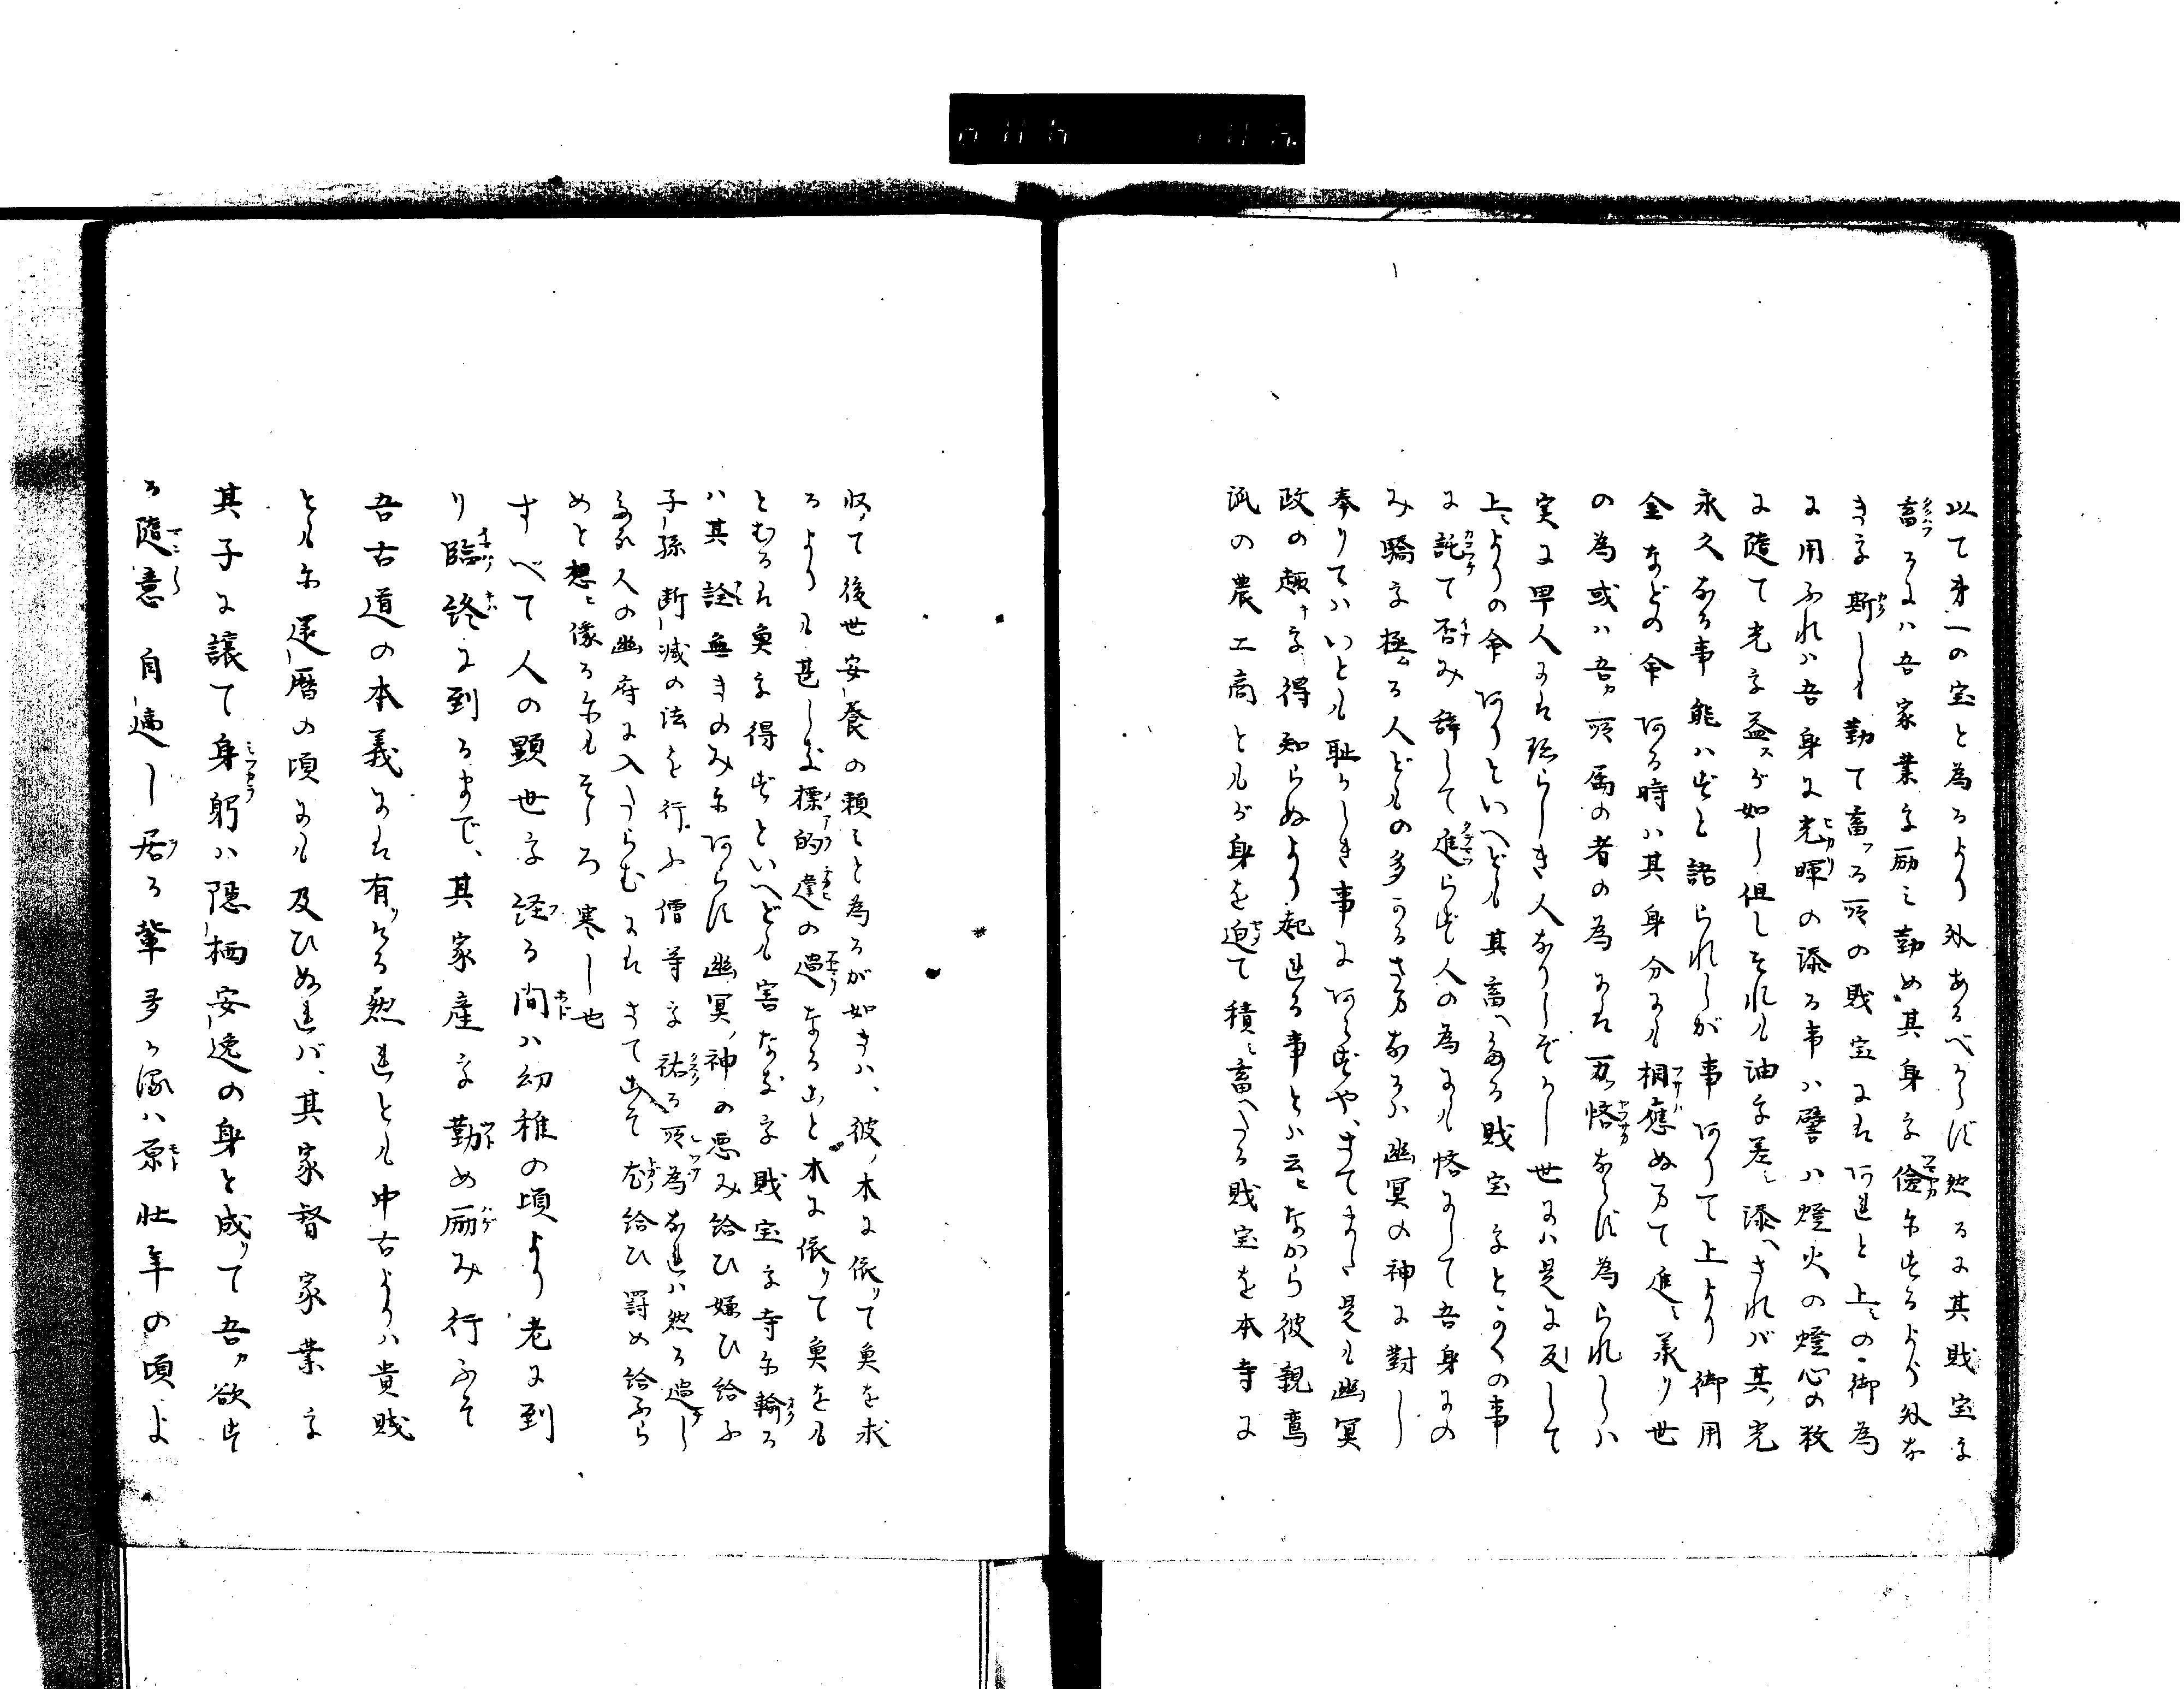 以て第一の宝と為るより外あるべからず然るに其賎宝を
畜るには吾家業を励ミ勤め其身を儉にするより外な
きを斯しも勤て畜つる所の財宝には何れと上ミの御為
に用ふれハ吾身に光暉の添る事ハ譬ハ燈火の燈心の数
に随て光を益スが如し但しそれも油を差ミ添へされバ其ノ光
永久なる事能ハずと語られしが事ありて上より御用
金などの命ある時ハ其身分にも相應ぬまて進ミ奉り世
の為或ハ吾ガ所属の者の為には吝なら須為られしハ
実に甲人には珍らしき人なりしぞかし世にハ是に反して
上ミよりの命ありといへども其畜へたる財宝をとかくの事
に託て否み辞して進らず人の為にも吝にして吾身にの
み驕を極むる人どもの多かるさまなるハ幽冥の神に對し
奉りてハいとも恥かしき事にあらずや、さてまた是も幽冥
政の趣キを得知らぬより起れる事とハ云ヒながら彼親鸞
派の農工商ともが身を迫て積ミ畜へたる財宝を本寺に
収て後世安養の頼ミと為るが如きハ、彼ノ木に依リて魚を求
るよりも甚しき標的違の過なること木に依りて魚をも
とむるは魚を得ずといへども害なきを財宝を寺に輸る
ハ其詮無きのみにあらず幽冥ノ神の悪み給ひ嫌ひ給ふ
子孫断滅の法を行ふ僧等を祐る所為なれハ然る過し
たる人の幽府に入たらむにはさてこそ 給ひ罰め給ふら
めと想ヒ像るにもそゞろ寒し也
すべて人の顕世を経る間ハ幼稚の頃より老に到
り臨終に到るまで、其家産を勤め励み行ふぞ
吾古道の本義には有リける然れとも中古よりハ貴賎
ともに還暦の頃にも及ひぬれバ、其家督家業を
其子に譲て身躬ハ隠栖安逸の身と成リて吾ガ欲す
る隨意自適し居る輩多かるハ原壮年の頃よ